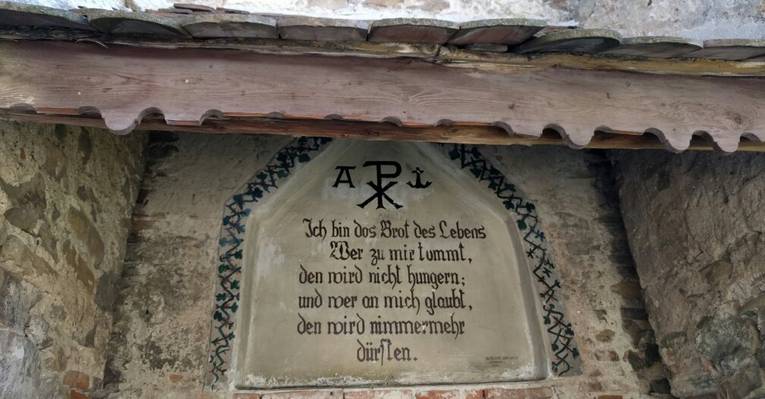 Α ☧ ⚓
Ich bin das Brot des Lebens
Wer zu mir kommt,
den wird nicht hungern;
und wer an mich glaubt,
den wird nimmermehr
dürsten.